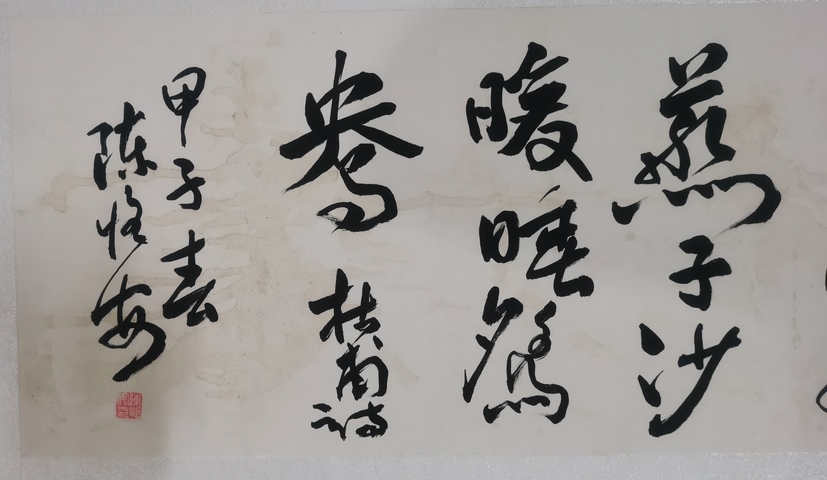 燕子沙
暖睡鴛
鴦 杜甫诗
甲子春
陈